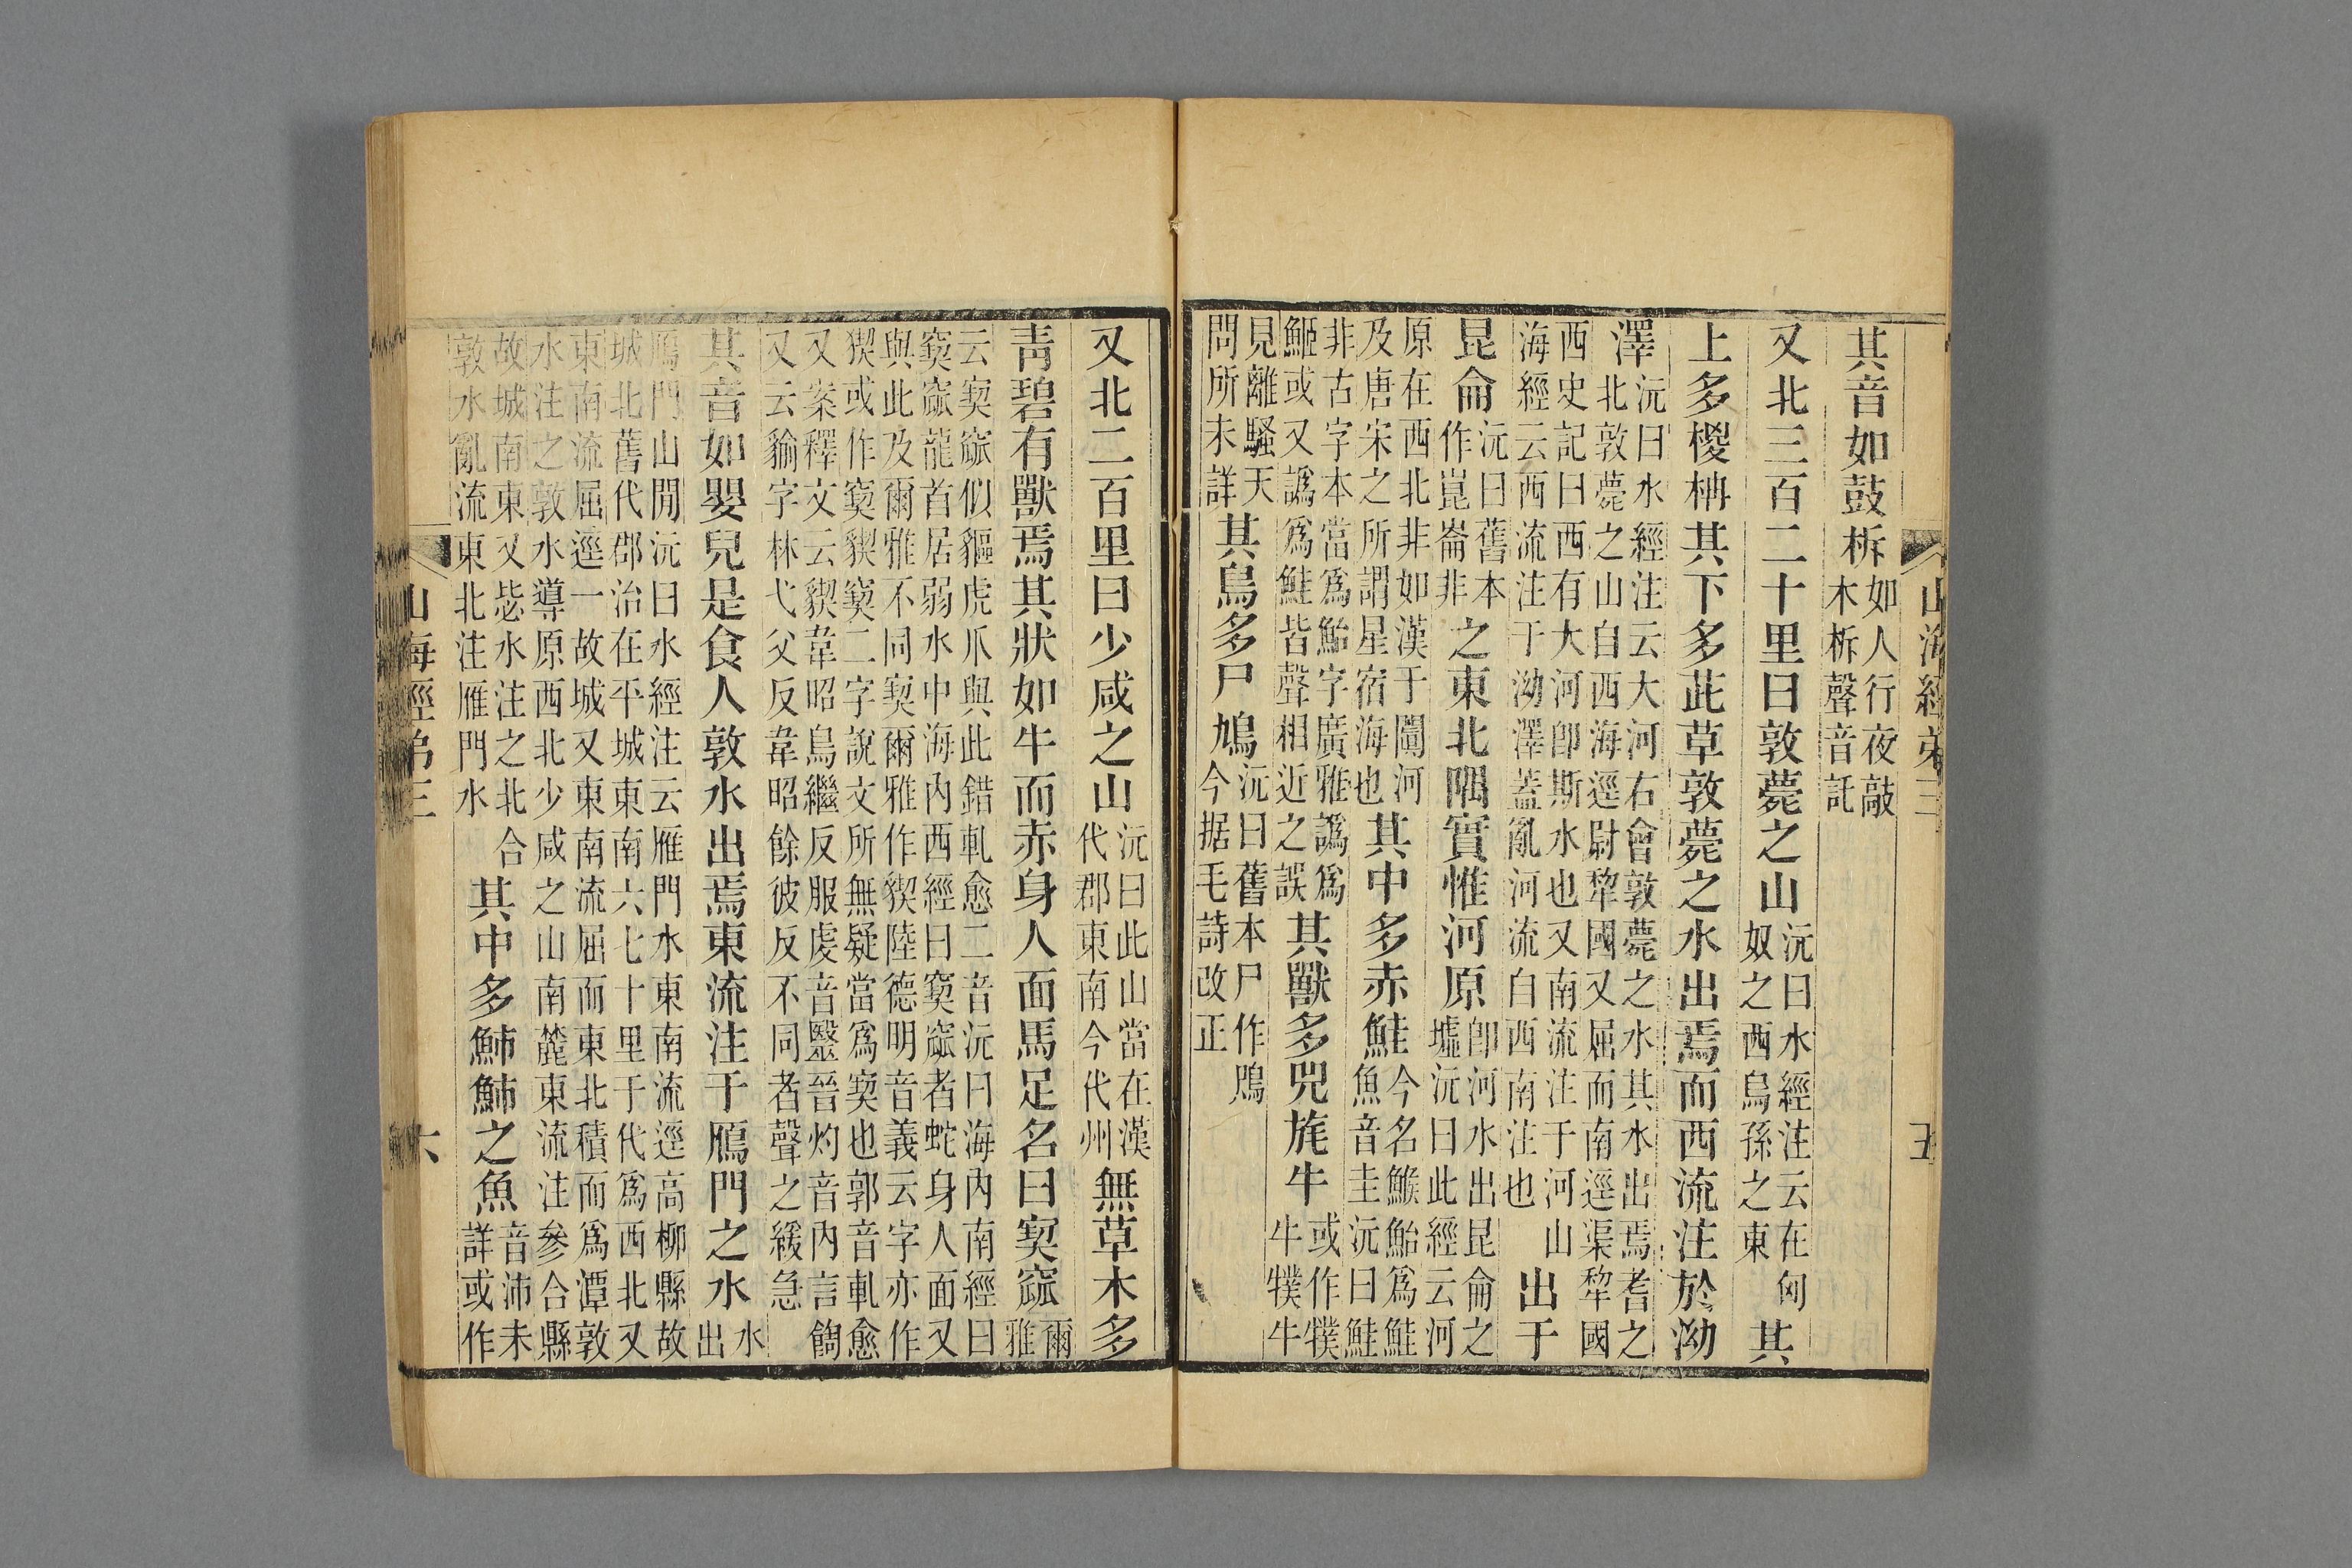 山海經弟三　五
其音如鼓柝如人行夜敲
木柝聲音託
又北三百二十里曰敦薨之山沅曰水經注云在匈
奴之西烏孫之東其
上多椶枏其下多茈草敦薨之水出焉而西流注於泑
澤沅曰水經注云大河右會敦薨之水其水出焉耆之
北敦薨之山自西海逕尉犂國又屈而南逕渠犂國
西史記曰西有大河卽斯水也又南流注于河山
海經云西流注于泑澤蓋亂河流自西南注也出于
昆侖沅曰舊本
作崑崙非之東北隅實惟河原卽河水出昆侖之
墟沅曰此經云河
原在西北非如漢于闐河
及唐宋之所謂星宿海也其中多赤鮭今名鯸鮐爲鮭
魚音圭沅曰鮭
非古字本當爲鮐字廣雅譌爲
或又譌爲鮭皆聲相近之誤其獸多兕旄牛或作㹒
牛㹒牛
見離騷天
問所未詳其鳥多尸鳩沅曰舊本尸作鳲
今据毛詩改正
又北二百里曰少咸之山沅曰此山當在漢
代郡東南今代州無草木多
青碧有獸焉其狀如牛而赤身人面馬足名曰窫窳爾
雅
云窫窳似貙虎爪與此錯軋愈二音沅曰海內南經曰
窫窳龍首居弱水中海內西經曰窫窳者蛇身人面又
與此及爾雅不同窫爾雅作猰陸德明音義云字亦作
猰或作窫猰窫二字說文所無疑當爲窫也郭音軋愈
又案釋文云猰韋昭烏繼反服虔音毉晉灼音內言
又云貐字林弋父反韋昭餘彼反不同者聲之緩急
其音如嬰兒是食人敦水出焉東流注于鴈門之水水
出
鴈門山閒沅曰水經注云雁門水東南流逕高柳縣故
城北舊代郡治在平城東南六七十里于代爲西北又
東南流屈逕一故城又東南流屈而東北積而爲潭敦
水注之敦水導原西北少咸之山南麓東流注參合縣
故城南東又毖水注之北合
敦水亂流東北注雁門水其中多䰽䰽之魚音沛未
詳或作
山海經弟三　六